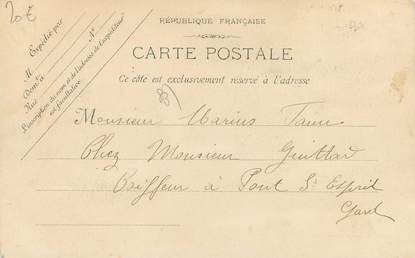 20€
RÉPUBLIQUE FRANÇAISE
CARTE POSTALE
Ce côté est exclusivement réservé à l'adresse
Expédié par
M
Dem.t à
Rue
N°
L'inscription du nom et de l'adresse de l'expéditeur
est facultative.
Monsieur Marius
Chez Monsieur Guittard
Coiffeur à Pont St Esprit
Gard